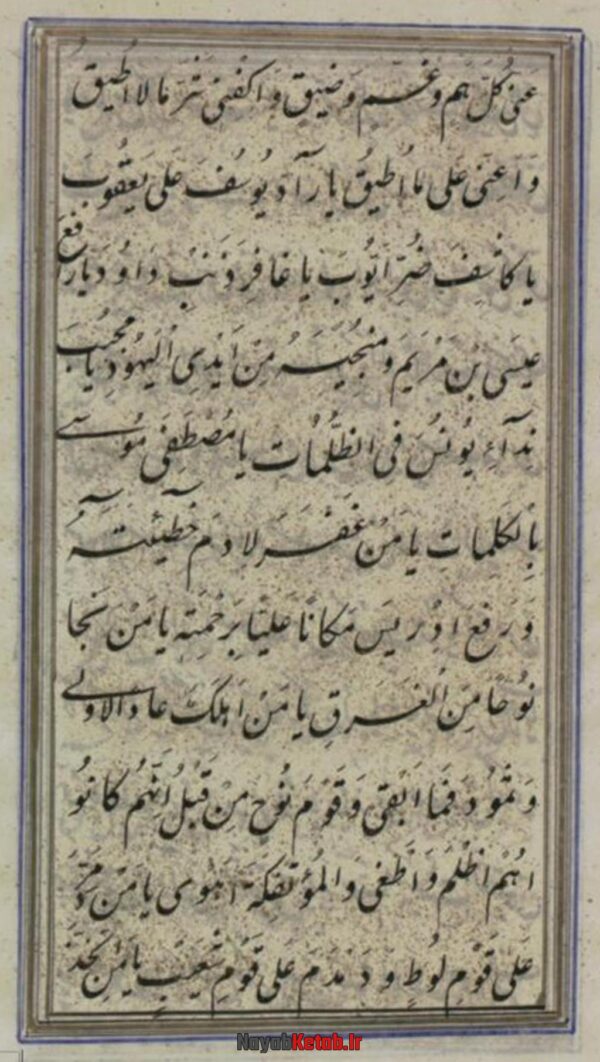 عَنّی کُلَّ هَمٍّ وَغَمٍّ وَضیقٍ وَاکْفِنی شَرَّ مَا لا اُطیقُ
وَاَعِنّی عَلی مَا اُطیقُ یا رآدَّ یُوسُفَ عَلی یَعْقُوبَ
یا کاشِفَ ضُرِّ اَیُّوبَ یا غافِرَ ذَنْبِ دَاوُدَ یا رافِعَ
عیسَی بْنِ مَرْیَمَ وَمُنْجِیَهُ مِنْ اَیْدِی الْیَهُودِ یا مُجیبَ
نِدآءِ یُونُسَ فِی الظُّلُماتِ یا مُصْطَفِیَ مُوسی
بِالْکَلِماتِ یا مَنْ غَفَرَ لِادَمَ خَطیئَتَهُ
وَرَفَعَ اِدْریسَ مَکاناً عَلِیّاً بِرَحْمَتِهِ یا مَنْ نَجّا
نُوحاً مِنَ الْغَرَقِ یا مَنْ اَهْلَکَ عاداً الْاُولی
وَثَمُودَ فَمَا اَبْقی وَقَوْمَ نُوحٍ مِنْ قَبْلُ اِنَّهُمْ کانُو
اهُمْ اَظْلَمَ وَاَطْغی وَالْمُؤْتَفِکَةَ اَهْوی یا مَنْ دَمَّرَ
عَلی قَوْمِ لُوطٍ وَدَمْدَمَ عَلی قَوْمِ شُعَیْبٍ یا مَنِ اتَّخَذَ
NayabKetab.Ir